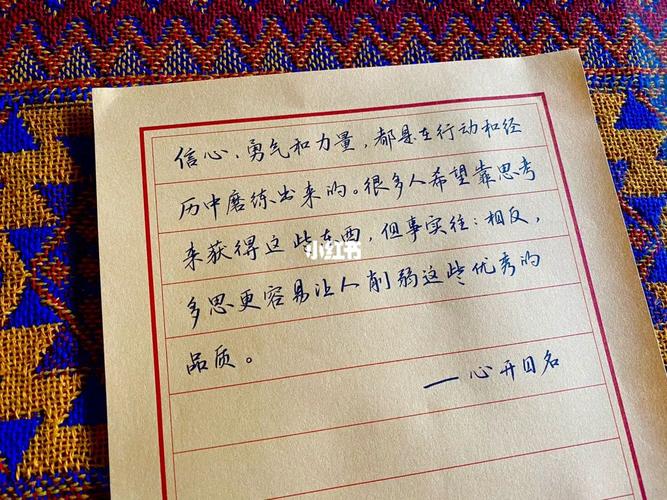 信心、勇气和力量，都是在行动和经
历中磨练出来的。很多人希望靠思考
来获得这些东西，但事实往：相反，
多思更容易让人削弱这些优秀的
品质。
——心开目名
小红书